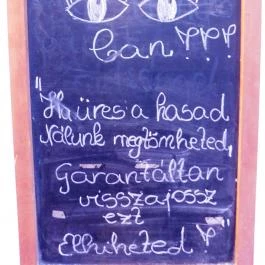 Can???
"Ha üres a hasad
Nálunk megtömheted,
Garantáltan
visszajössz
ezt
Elhiheted?"